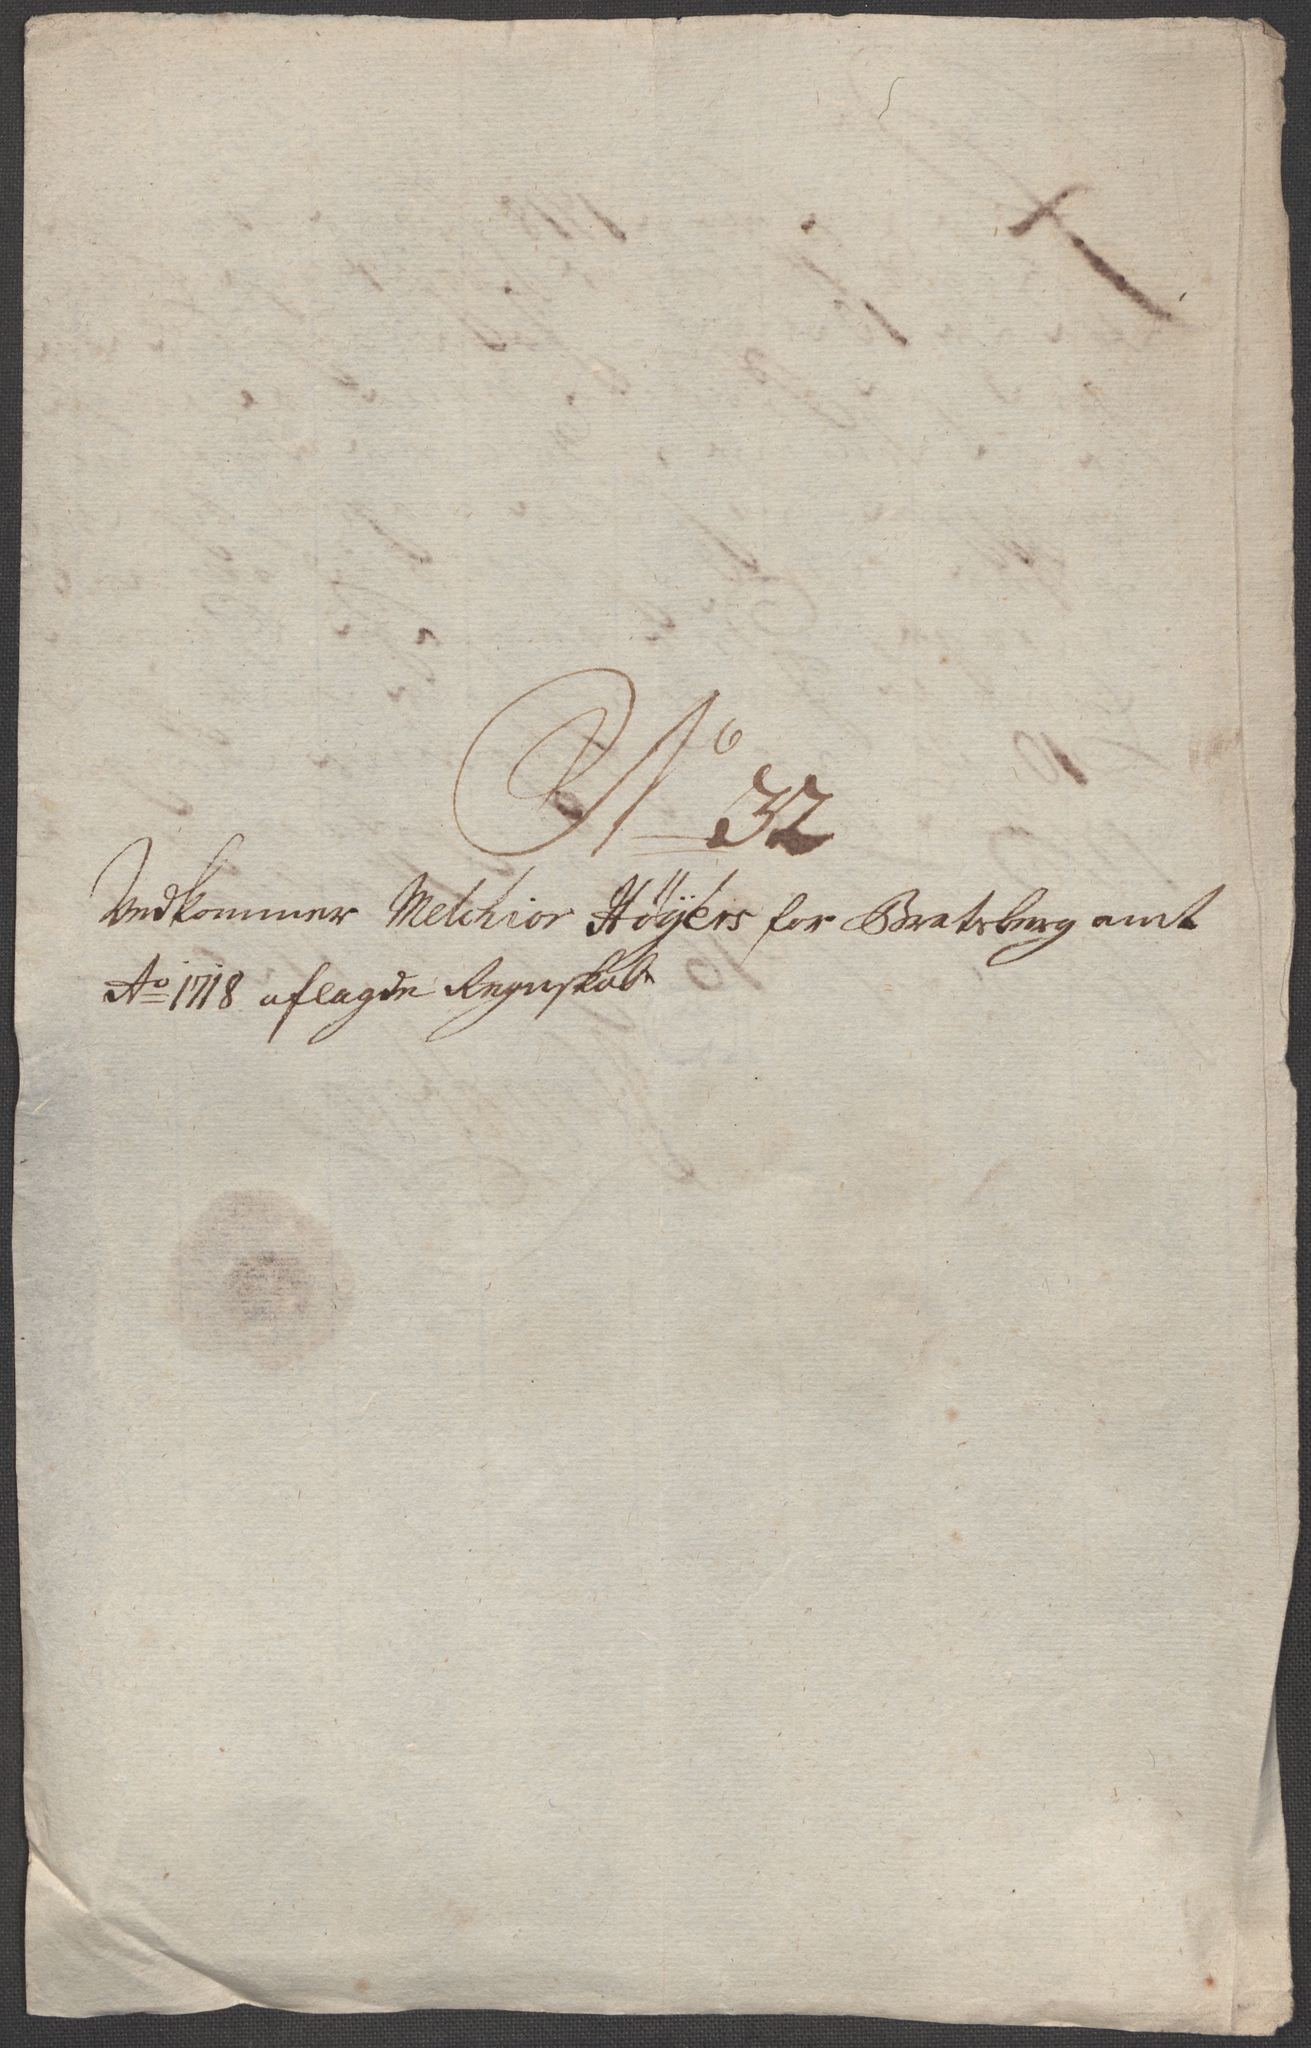 No 32
Vedkommer Melchior Höÿers for Bratsberg amt
Ao 1718 aflagde Regnskab